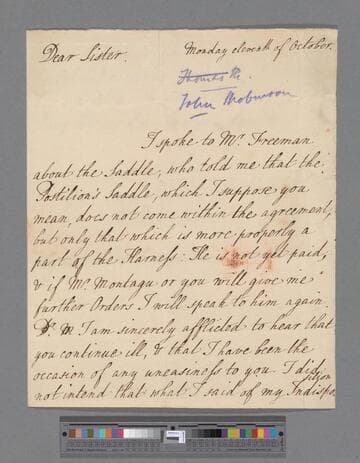 Dear Sister.
Monday eleventh of October.
Thomas R.
John Robinson
I spoke to Mr. Freeman
about the Saddle, who told me that the
Postilion's Saddle, which I suppose you
mean, does not come within the agreement,
but only that which is more properly a
part of the Harness. He is not yet paid,
& if Mr. Montagu or you will give me
further Orders. I will speak to him again.
I am sincerely afflicted to hear that
you continue ill, & that I have been the
occasion of any uneasiness to you. I did
not intend that what I said of my Indispo,
sition